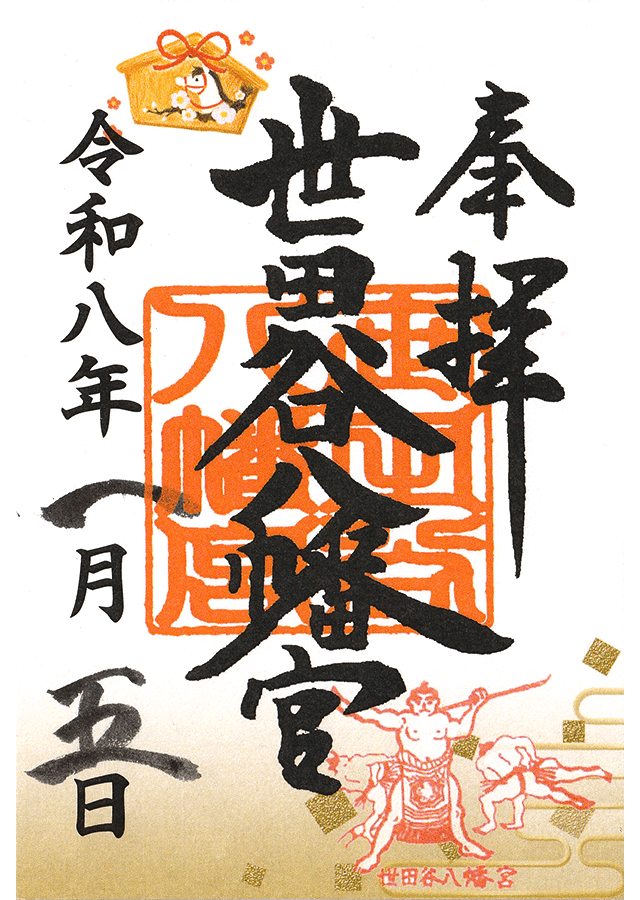 奉拝
世田谷八幡宮
令和八年一月五日
世田谷八幡宮
世田谷八幡宮